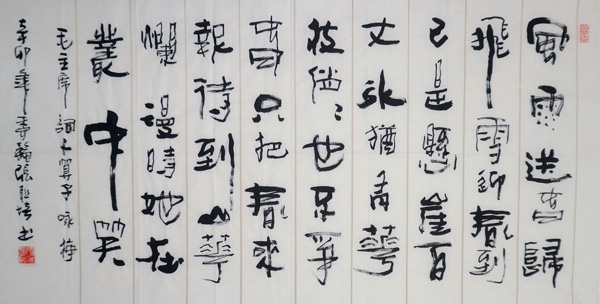 風雨送春歸
飛雪迎春到
已是懸崖百
丈冰猶有華
枝俏〻也不爭
春只把春來
報待到山華
爛漫時她在
叢中笑
毛主席詞卜算子咏梅
辛卯年季張培书